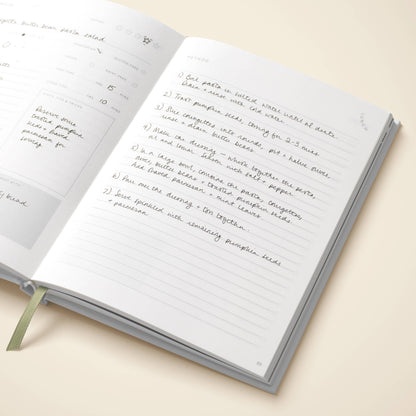 courgette, butter bean pasta salad
15
10
Reserve some
toasted pumpkin
seeds + shaved
parmesan for
serving
bread
METHOD
1) Boil pasta in salted water until al dente.
Drain + rinse with cold water
2) Toast pumpkin seeds, stirring for 2-3 mins
3) Slice courgettes into rounds, pit + halve olives,
rinse + drain butter beans.
4) Make the dressing - whisk together the
oil and lemon. Season with salt + pepper
5) In a large bowl, combine the pasta, courgettes,
olives, butter beans + toasted pumpkin seeds.
Add shaved parmesan + mint leaves
6) Pour over the dressing + toss together
7) Serve sprinkled with remaining pumpkin seeds
+ parmesan